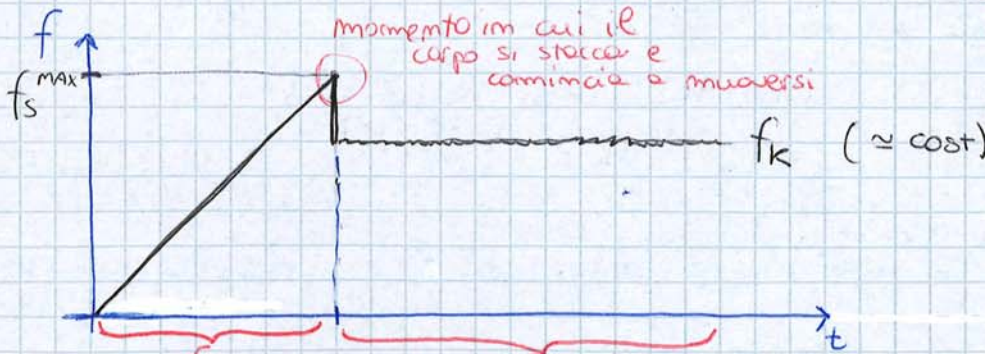 f
momento in cui il
corpo si stacca e
comincia a muoversi
fs MAX
fk (≃ cost)
t